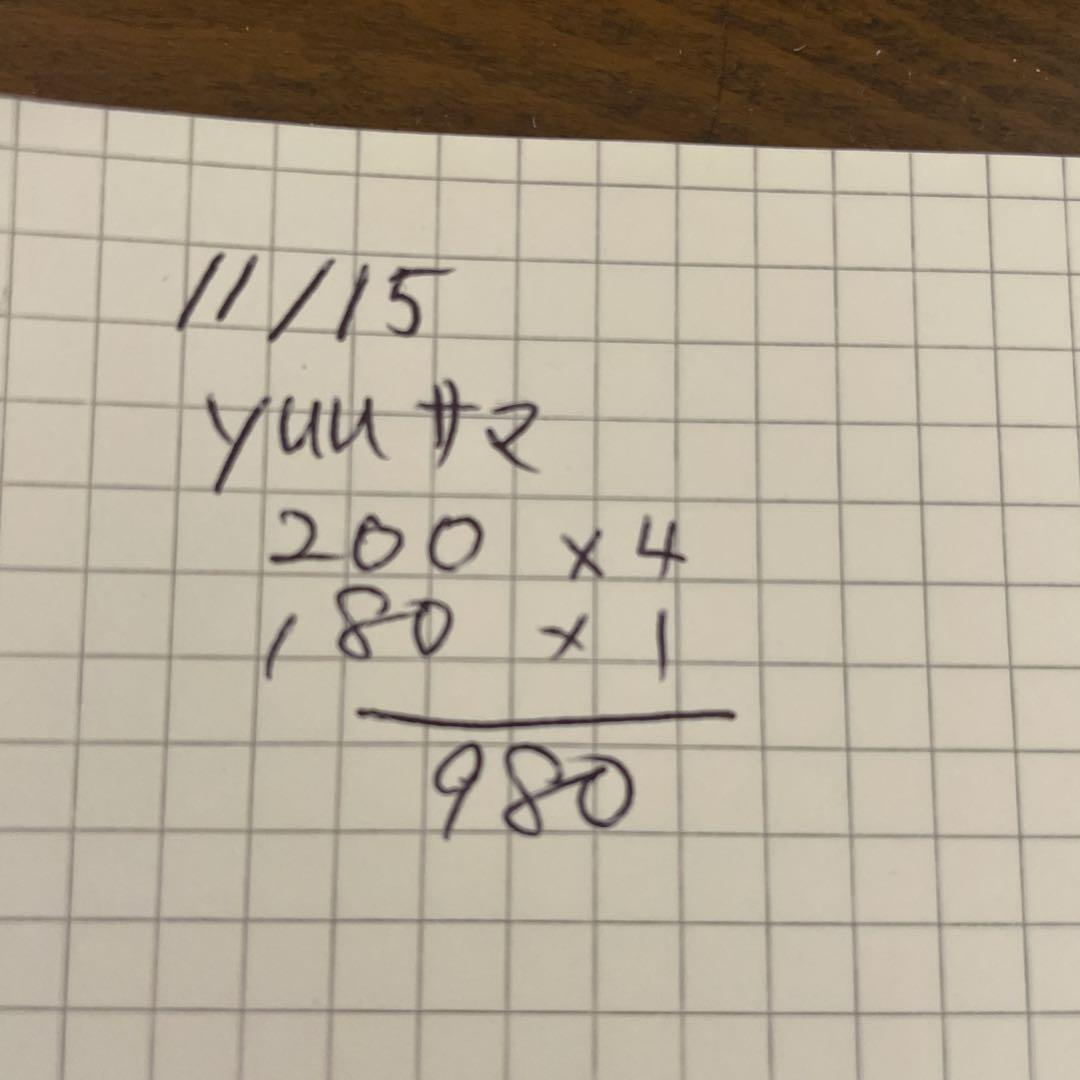 11/15
yuu #2
200 x 4
180 x 1
980